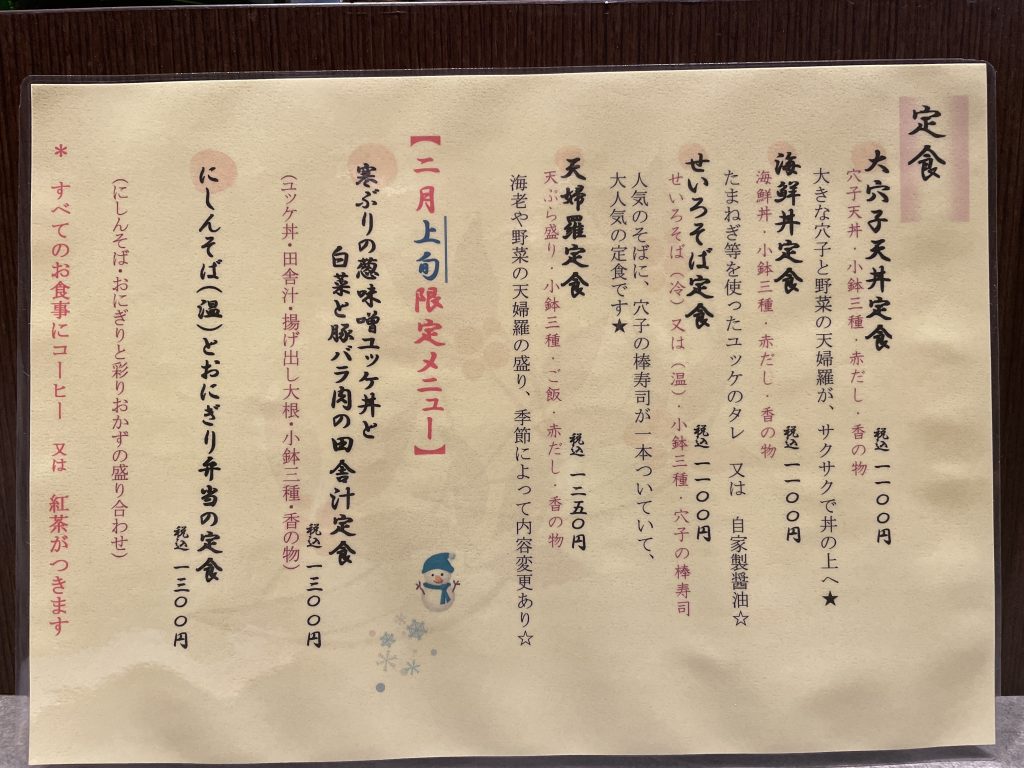 定食
大穴子天丼定食
税込 一一〇〇円
穴子天丼・小鉢三種・赤だし・香の物
大きな穴子と野菜の天婦羅が、サクサクで丼の上へ★
海鮮丼定食
税込 一一〇〇円
海鮮丼・小鉢三種・赤だし・香の物
たまねぎ等を使ったユッケのタレ 又は 自家製醤油☆
せいろそば定食
税込 一一〇〇円
せいろそば(冷)又は(温)・小鉢三種・穴子の棒寿司
人気のそばに、穴子の棒寿司が一本ついていて、
大人気の定食です★
天婦羅定食
税込 一二五〇円
天ぷら盛り・小鉢三種・ご飯・赤だし・香の物
海老や野菜の天婦羅の盛り、季節によって内容変更あり☆
【二月上旬限定メニュー】
寒ぶりの葱味噌ユッケ丼と
白菜と豚バラ肉の田舎汁定食
税込 一三〇〇円
(ユッケ丼・田舎汁 揚げ出し大根・小鉢三種・香の物)
にしんそば(温)とおにぎり弁当の定食
税込 一三〇〇円
(にしんそば・おにぎりと彩りおかずの盛り合わせ)
* すべてのお食事にコーヒー 又は 紅茶がつきます